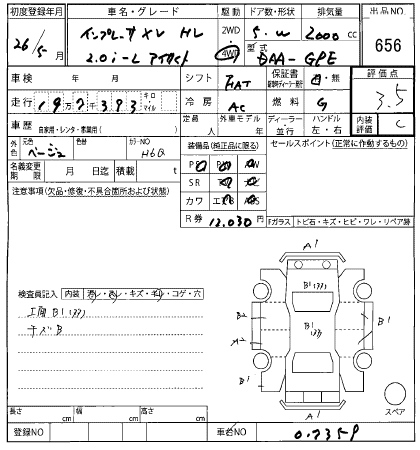 初度登録年月 車名・グレード 駆動 ドア数・形状 排気量 出品NO
26/5月 インプレッサXV HV 2WD 5.W 2000cc 656
2.0i-L アイサイト 4WD 型式 DAA-GPE
車検 年 月 シフト FAT 保証書 有・無 評価点
走行 19万7千393 キロ・マイル 冷房 AC 燃料 G 3.5
車歴 自家用・レンタ・事業用( ) 定員 人 外車モデル 年 ディーラー・並行 ハンドル 左・右 内装評価 C
外色 元色 ベージュ 色替 カラーNO H6Q 装備品(純正品に限る) セールスポイント(正常に作動するもの)
名義変更期限 月 日迄 積載 t PS PW
注意事項(欠品・修復・不具合箇所および状態) SR
カワ エアB ABS
R券 12,030 Fガラス トビ石・キズ・ヒビ・ワレ・リペア跡
A1
検査員記入 内装 キズ・コゲ・穴
B1(33)
工間B1(33) B2 B1 B1
キズB (33)
A2
B1
A1 スペア
長さ cm 幅 cm 高さ cm
登録NO 車台NO 0.735P